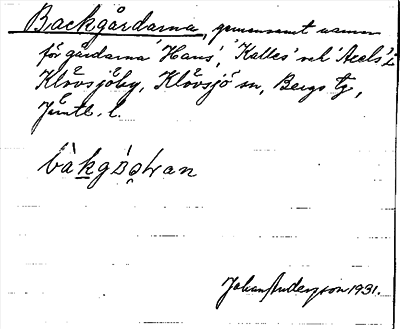 Backgårdarna, gemensamt namn
för gårdarna 'Hans', 'Kalles' och 'Axels' i
Klövsjöby, Klövsjö sn, Bergs tg,
Jämtl. l.
Johan Anderzson 1931.